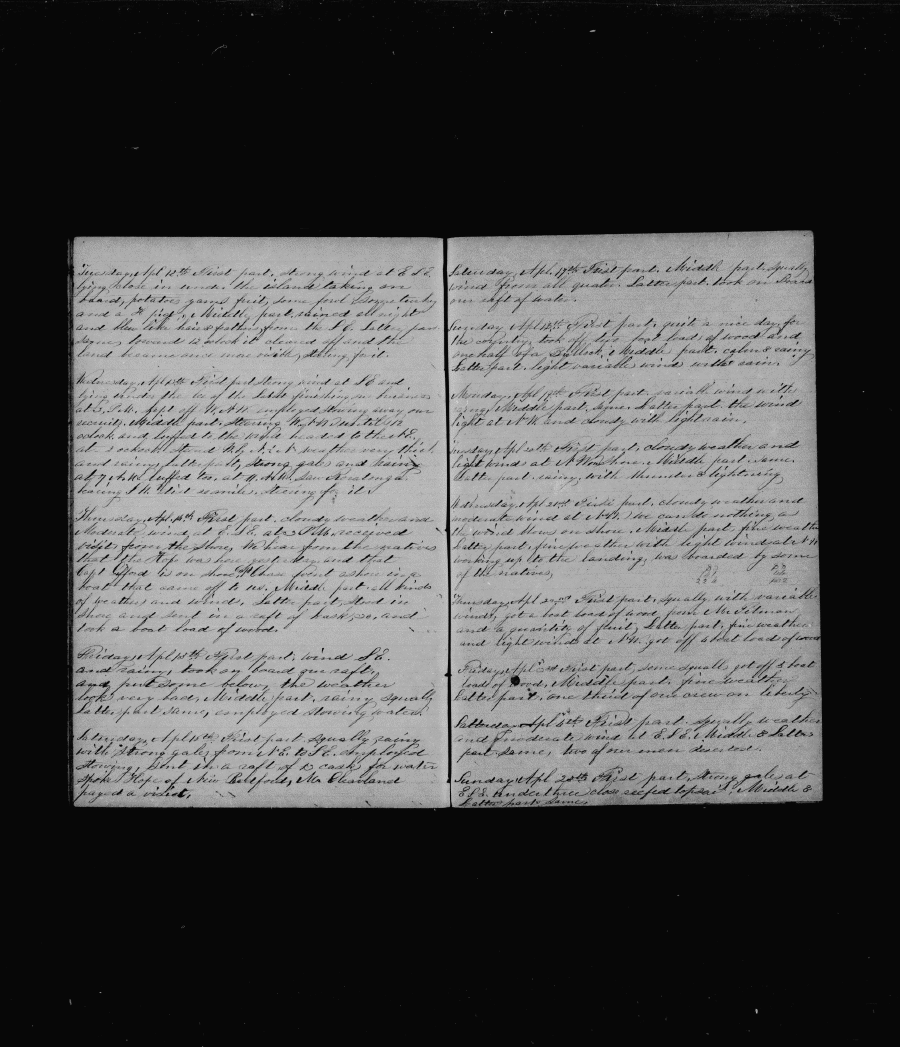 Tuesday, Apl 12th First part, strong wind at E S E.
lying close in under the island taking on
board, potatoes yams fruit, some fowl
and a Middle part, rained all night
and blew from the S E. Latter part
same, toward o clock it cleared off and the
land became
Wednesday, Apl First part strong wind at S E and
lying under the lee of the Island finishing our business
at 5, P.M. kept off employed stowing away our
Middle part. Steering until 12
oclock and luffed to the wind headed to the N E,
at 2 oclock weather very thick
and rainy, latter part, strong gales and rainy
at 7 A.M. luffed too, at 11, A.M. saw
bearing dist miles, steering for it.
Thursday, Apl 14th First part. cloudy weather and
Moderate wind at E. S E. at 2 P.M. received
visit from the shore, We hear from the natives
that the Hope was here yesterday and that
is on shore,
boat that came off to us. Middle part all kinds
of weather and winds, Latter part, stood in
shore and sent in a raft of casks, 20, and
took a boat load of wood.
Friday, Apl 15th First part, wind S. E.
and rainy, took on board our raft,
and put some below, the weather
looks very bad, Middle part, rain squally
latter part same, employed stowing water.
Saturday, Apl 16th First part squally rainy
with strong gales from N E. to S E. employed
stowing, sent in a raft of casks for water
spoke Hope of New Bedford, Mr Cleaveland
payed a visit,
Saturday, Apl. 17th First part. Middle part squally
wind from all quater. Latter part. took on board
our raft of water.
Sunday, Apl 18th First part, quite a nice day for
the country, took off two boat load, of wood and
one half of a Bullock, Middle part, calm & rainy
Latter part light variable wind with rain.
Monday, Apl, 19th First part. variable wind with
rain, Middle part, same. Latter part the wind
light at N W. and cloudy with light rain,
Tuesday, Apl 20th First part, cloudy weather and
light winds at N W on shore, Middle part same.
Latter part rainy, with thunder & lightning
Wednesday, Apl 21st First part, cloudy weather and
moderate wind at N W. we can do nothing as
the wind blows on shore, Middle part, fine weather
Latter part, fine weather with light wind at N W
working up to the landing, was boarded by some
of the natives,
Thursday, Apl 22nd First part, squally with variable
winds, got a boat load of wood, from Mr Pitman
and a quantity of fruit, Latter part, fine weather
and light wind at N W. got off a boat load of wood
Friday, Apl First part, some squalls got off a boat
load of wood, Middle part. fine weather
Latter part, one third of our crew on liberty
Saturday, Apl First part squally weather
and moderate wind at E. S E. Middle & Latter
part same, two of our men deserted.
Sunday, Apl. 25th First part, strong gale, at
E S E. under three close reefed topsails, Middle &
Latter part same.